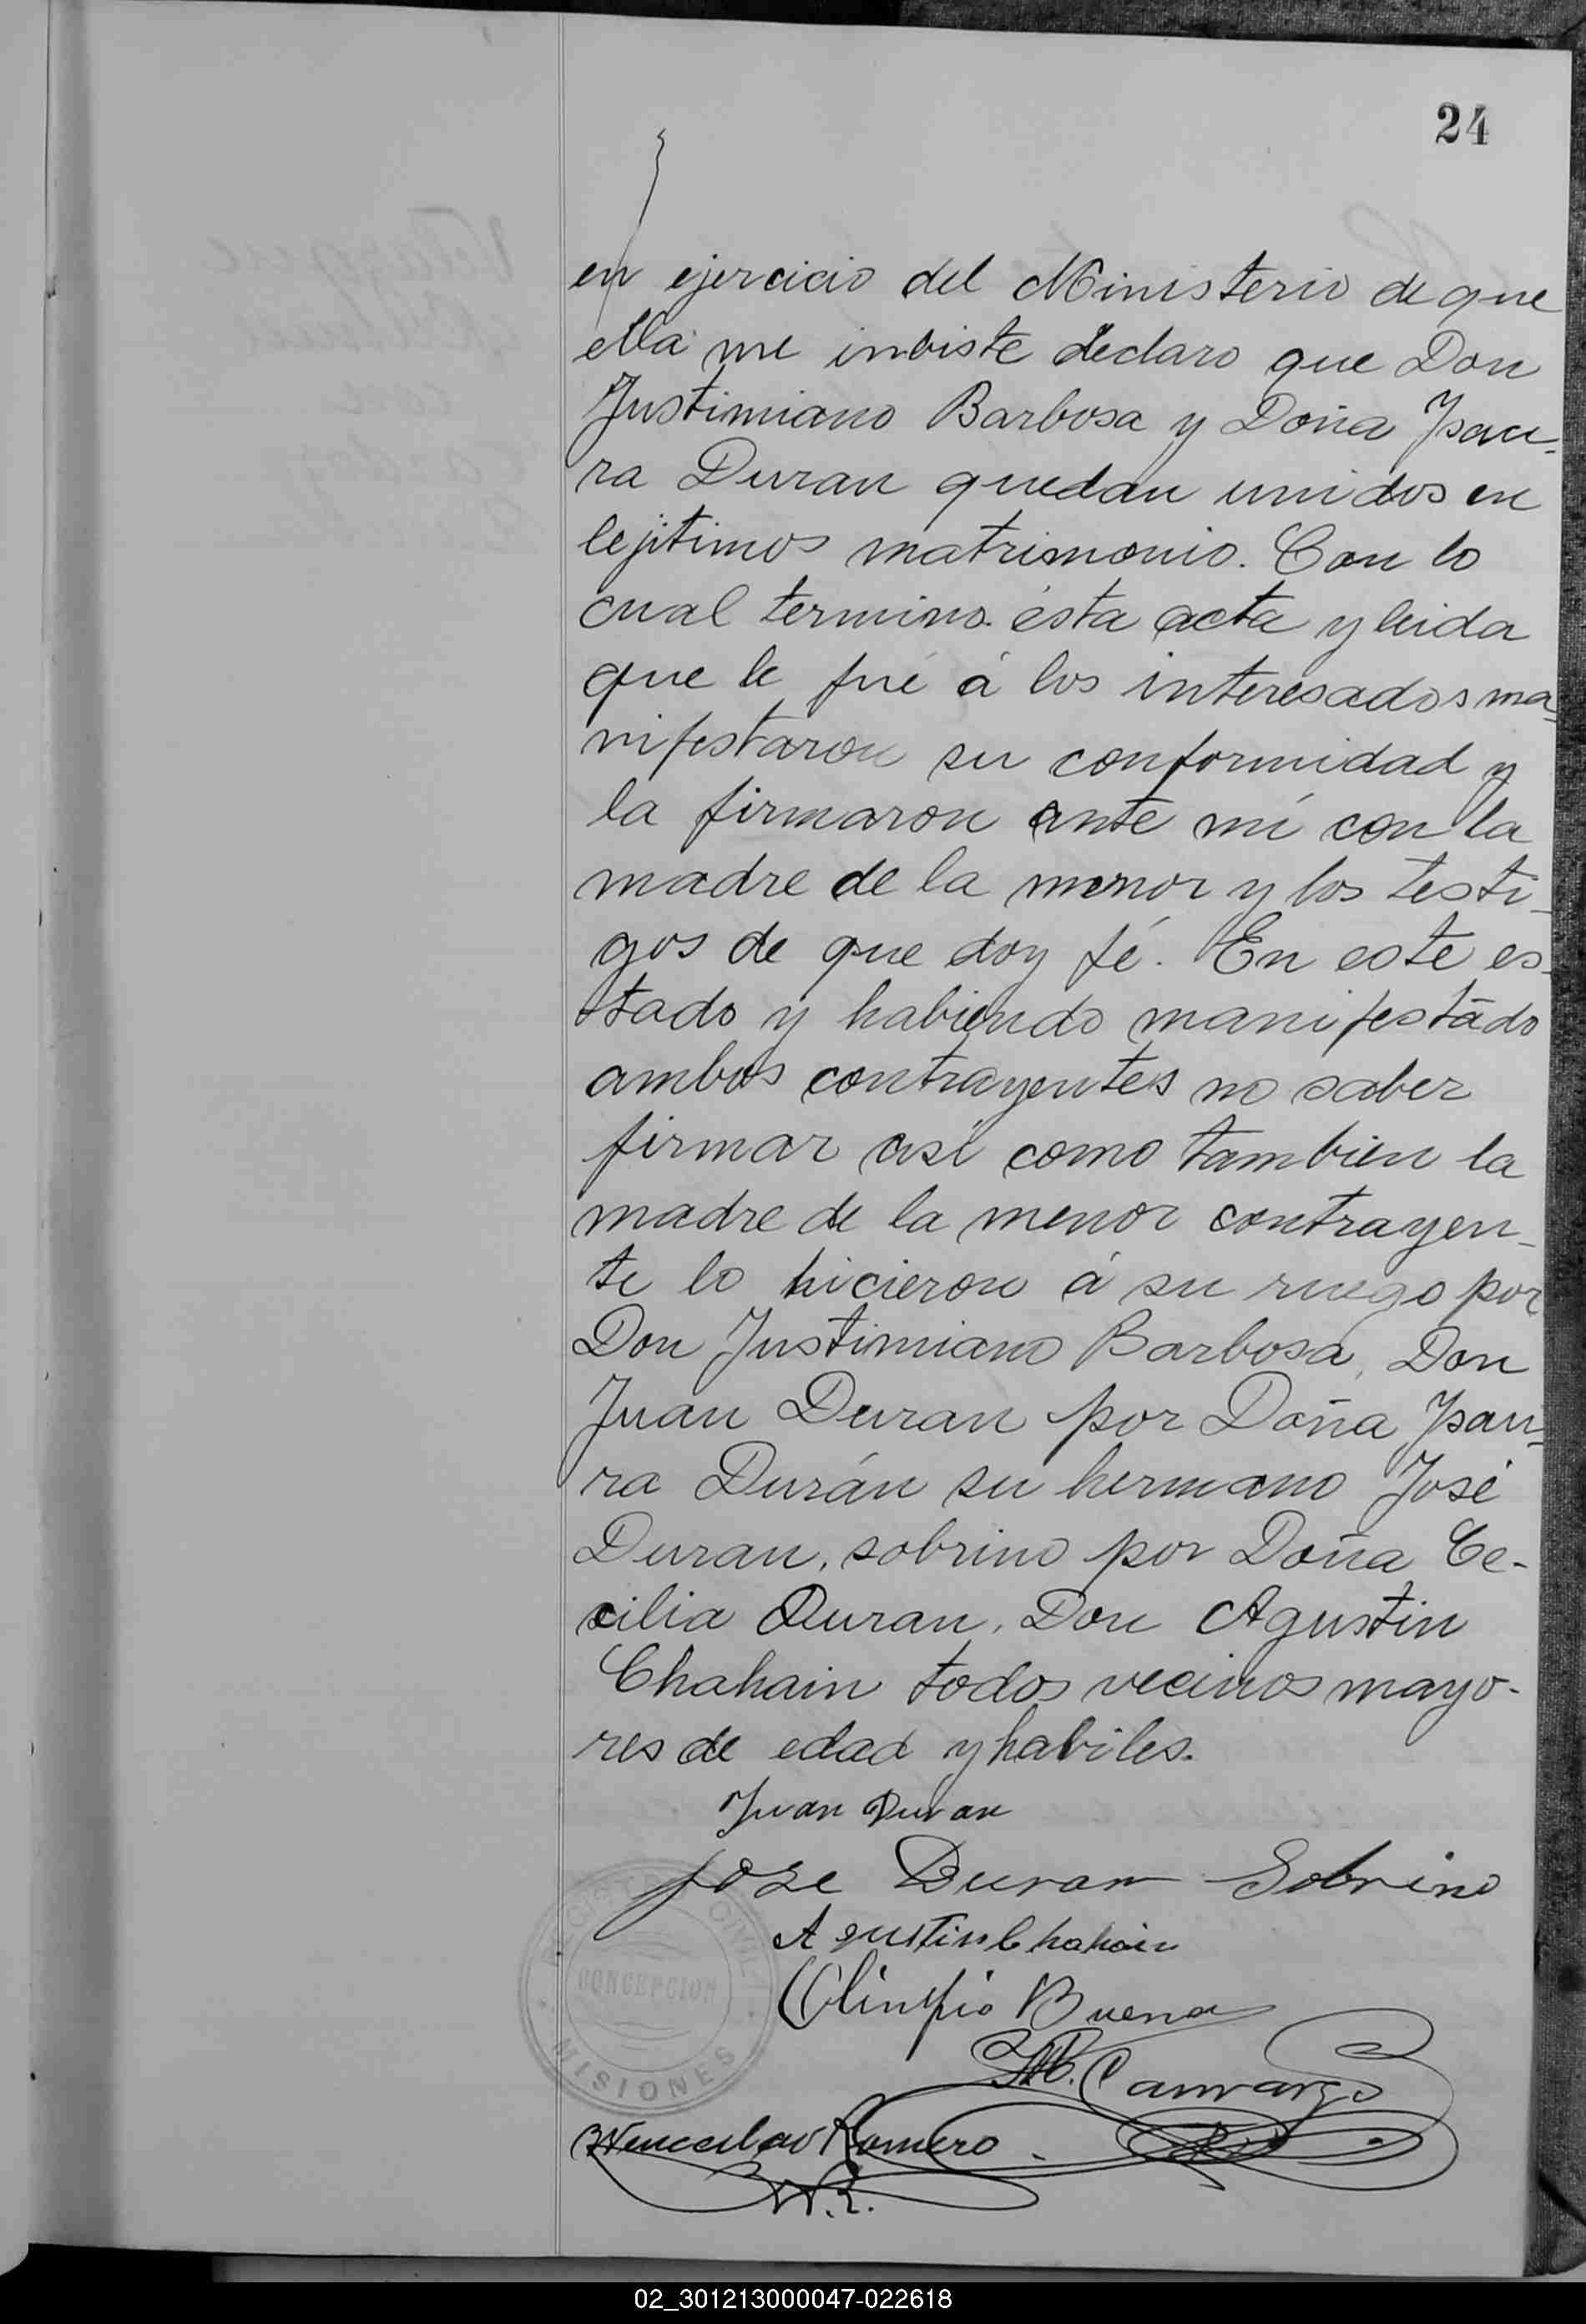 24
en ejercicio del Ministerio de que
ella me inbiste declaro que Don
Justimiano Barbosa y Doña Ysau-
ra Duran quedan unidos en
lejitimos matrimonio. Con lo
cual termino ésta acta y leida
que le fué á los interesados ma-
nifestaron su conformidad y
la firmaron ante mí con la
madre de la menor y los testi-
gos de que doy fé. En este es-
tado y habiendo manifestado
ambos contrayentes no saber
firmar asi como tambien la
madre de la menor contrayen-
te lo hicieron á su ruego por
Don Justimiano Barbosa, Don
Juan Duran por Doña Ysau-
ra Durán su hermano José
Duran, sobrino por Doña Ce-
cilia Duran, Don Agustin
Chahain todos vecinos mayo-
res de edad y habiles.
Juan Duran
Jose Duran Sobrino
Agustin Chahain
Olimpio Buena
Camargo
Wenceslao Romero
W.R.
REGISTRO CIVIL
CONCEPCION
MISIONES
02_301213000047-022618